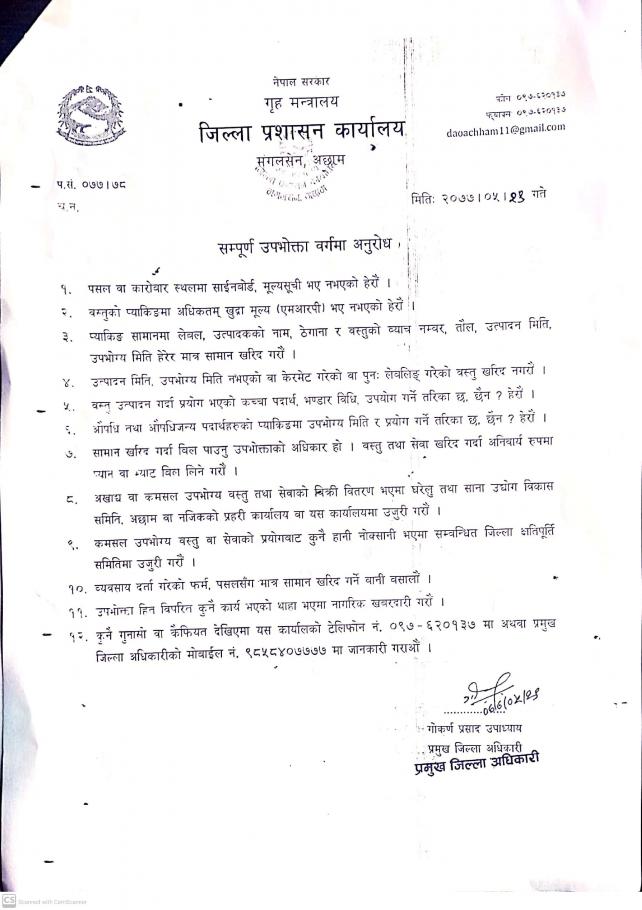 नेपाल सरकार
गृह मन्त्रालय
जिल्ला प्रशासन कार्यालय
मंगलसेन, अछाम
फोन ०९७-६२०१३७
फ्याक्स ०९७-६२०१३७
daoachham11@gmail.com
प.सं. ०७७।७८
च.न.
मितिः २०७७।०५।२३ गते
सम्पूर्ण उपभोक्ता वर्गमा अनुरोध ।
१. पसल वा कारोबार स्थलमा साईनबोर्ड, मूल्यसूची भए नभएको हेरौं ।
२. वस्तुको प्याकिङमा अधिकतम् खुद्रा मूल्य (एमआरपी) भए नभएको हेरौं ।
३. प्याकिङ सामानमा लेवल, उत्पादकको नाम, ठेगाना र वस्तुको ब्याच नम्बर, तौल, उत्पादन मिति,
उपभोग्य मिति हेरेर मात्र सामान खरिद गरौं ।
४. उत्पादन मिति, उपभोग्य मिति नभएको वा केरमेट गरेको वा पुनः लेवलिङ्ग गरेको वस्तु खरिद नगरौं ।
५. वस्तु उत्पादन गर्दा प्रयोग भएको कच्चा पदार्थ, भण्डार विधि, उपयोग गर्ने तरिका छ, छैन ? हेरौं ।
६. औषधि तथा औषधिजन्य पदार्थहरुको प्याकिङमा उपभोग्य मिति र प्रयोग गर्ने तरिका छ, छैन ? हेरौं ।
७. सामान खरिद गर्दा विल पाउनु उपभोक्ताको अधिकार हो । वस्तु तथा सेवा खरिद गर्दा अनिवार्य रुपमा
प्यान वा भ्याट विल लिने गरौं ।
८. अखाद्य वा कमसल उपभोग्य वस्तु तथा सेवाको बिक्री वितरण भएमा घरेलु तथा साना उद्योग विकास
समिति, अछाम वा नजिकको प्रहरी कार्यालय वा यस कार्यालयमा उजुरी गरौं ।
९. कमसल उपभोग्य वस्तु वा सेवाको प्रयोगबाट कुनै हानी नोक्सानी भएमा सम्बन्धित जिल्ला क्षतिपूर्ति
समितिमा उजुरी गरौं ।
१०. व्यवसाय दर्ता गरेको फर्म, पसलसँग मात्र सामान खरिद गर्ने बानी वसालौं ।
११. उपभोक्ता हित विपरित कुनै कार्य भएको थाहा भएमा नागरिक खबरदारी गरौं ।
१२. कुनै गुनासो वा कैफियत देखिएमा यस कार्यालको टेलिफोन नं. ०९७-६२०१३७ मा अथवा प्रमुख
जिल्ला अधिकारीको मोबाईल नं. ९८५८४०७७७७ मा जानकारी गराऔं ।
गोकर्ण प्रसाद उपाध्याय
प्रमुख जिल्ला अधिकारी
प्रमुख जिल्ला अधिकारी
CS Scanned with CamScanner